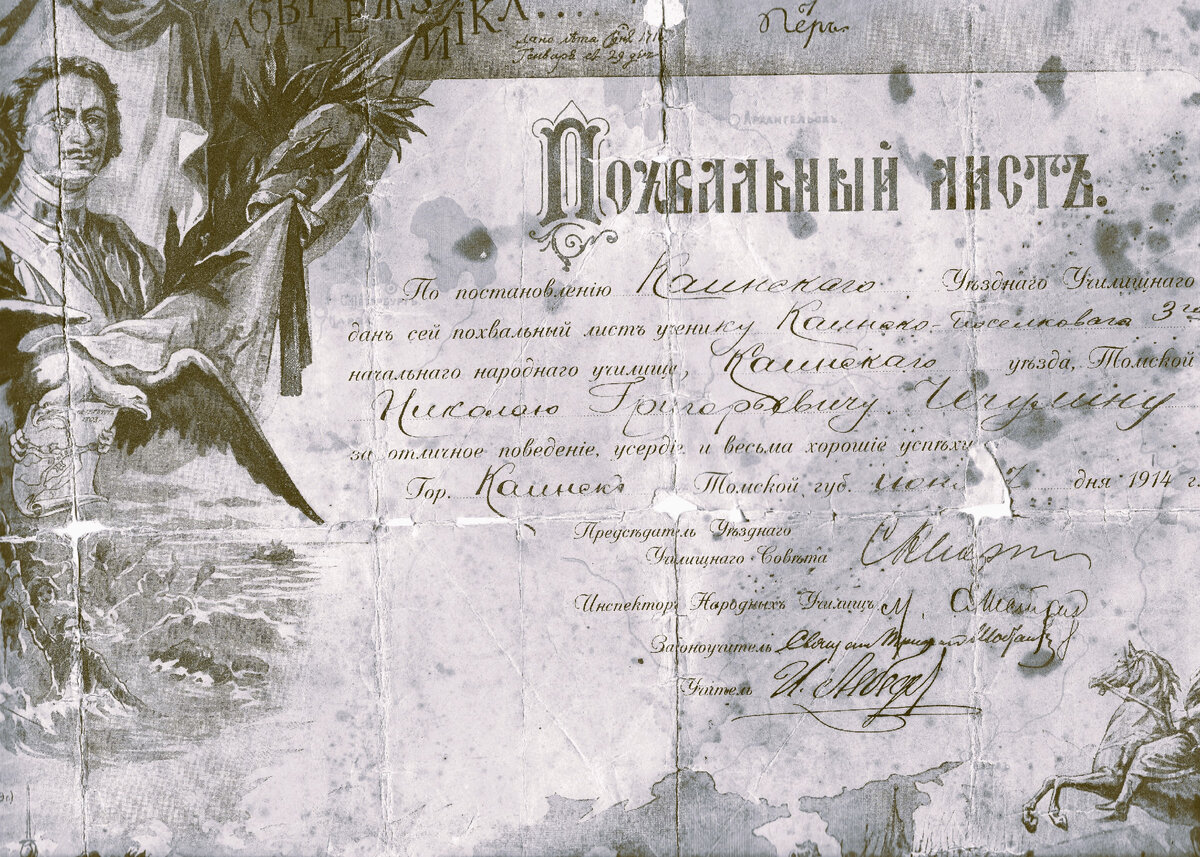 АБВГДЕЖЗИІКЛ....
дано лѣта 1710
Генваря въ 29 день
Перъ
Архангельскъ
Похвальный листъ.
По постановленію Каинскаго Уѣзднаго Училищнаго
данъ сей похвальный листъ ученику Каинско-Поселковаго 3го
начальнаго народнаго училища, Каинскаго уѣзда, Томской
Николаю Григорьевичу Чечулину
за отличное поведеніе, усердіе и весьма хорошіе успѣхи
Гор. Каинскъ Томской губ. дня 1914 г.
Предсѣдатель Уѣзднаго
Училищнаго Совѣта
Инспекторъ Народныхъ Училищъ
Законоучитель Священникъ
Учитель И.